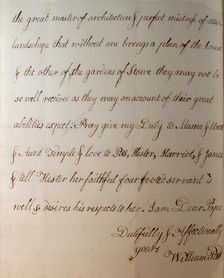 the great master of architecture & perfect mistress of
landschape that without one brings a plan of the house
& the other of the gardens of Stowe they may not be
so well receive as they may on account of their great
abilities expect. Pray give my Duty to Mama & Uncle
& Aunt Temple & love to Pitt, Hester, Harriot, & James
& tell Hester her faithful four footed servant is
well & desires his respects to her. I am Dear Papa
Dutifully & Affectionately
yours William Pitt